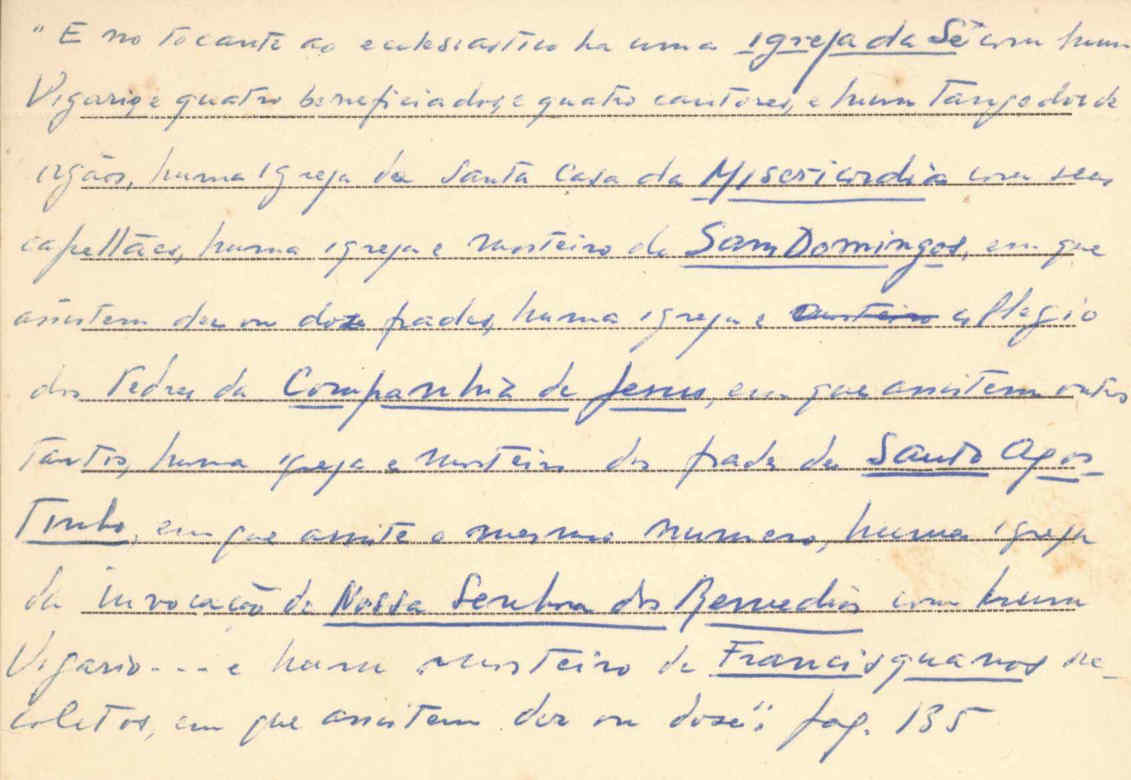 "E no tocante ao ecclesiastico ha uma igreja da Sé com hum
Vigario, e quatro beneficiados, e quatro cantores, e hum tangedor de
orgãos, huma igreja da Santa Casa da Misericordia com seus
capellães, huma igreja e mosteiro de Sam Domingos, em que
assistem dez ou doze frades, huma igreja e mosteiro collegio
dos Padres da Companhia de Jesus, em que assistem outros
tantos, huma igreja e mosteiro dos frades de Santo Agos-
tinho, em que assite o mesmo numero, huma igreja
da invocação de Nossa Senhora dos Remedios com hum
Vigario --- e hum mosteiro de Francisquanos re-
coletos, em que assistem dez ou doze". pag. 135